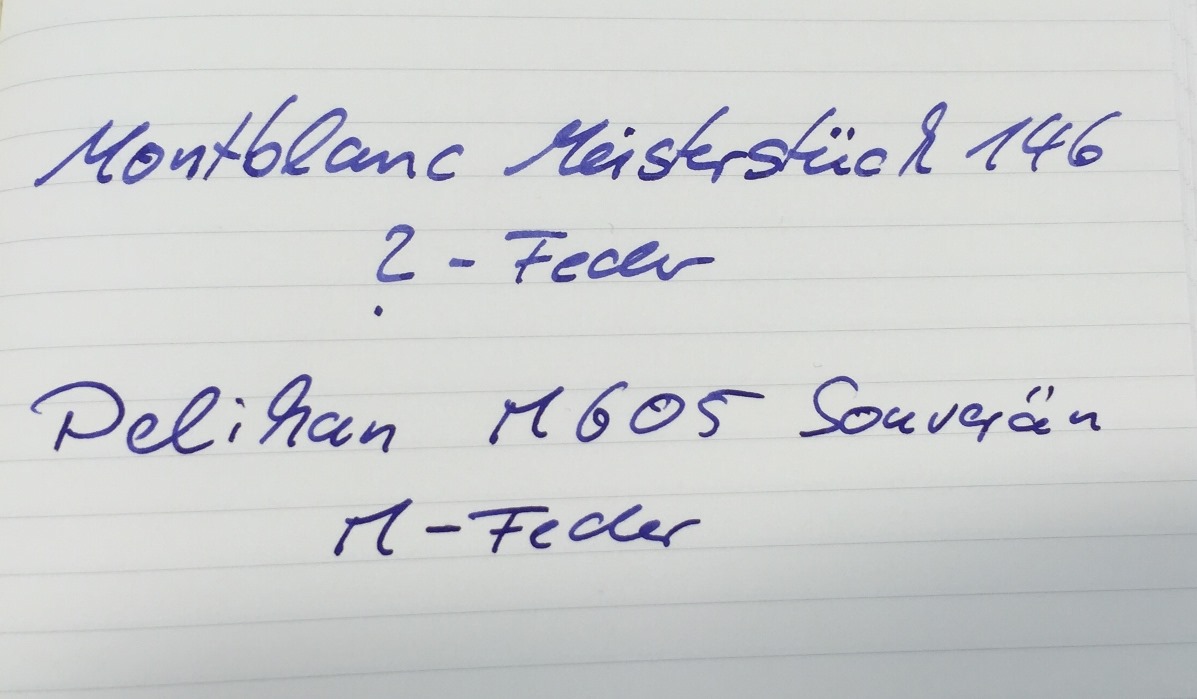 Montblanc Meisterstück 146
? - Feder
Pelikan M605 Souverän
M-Feder